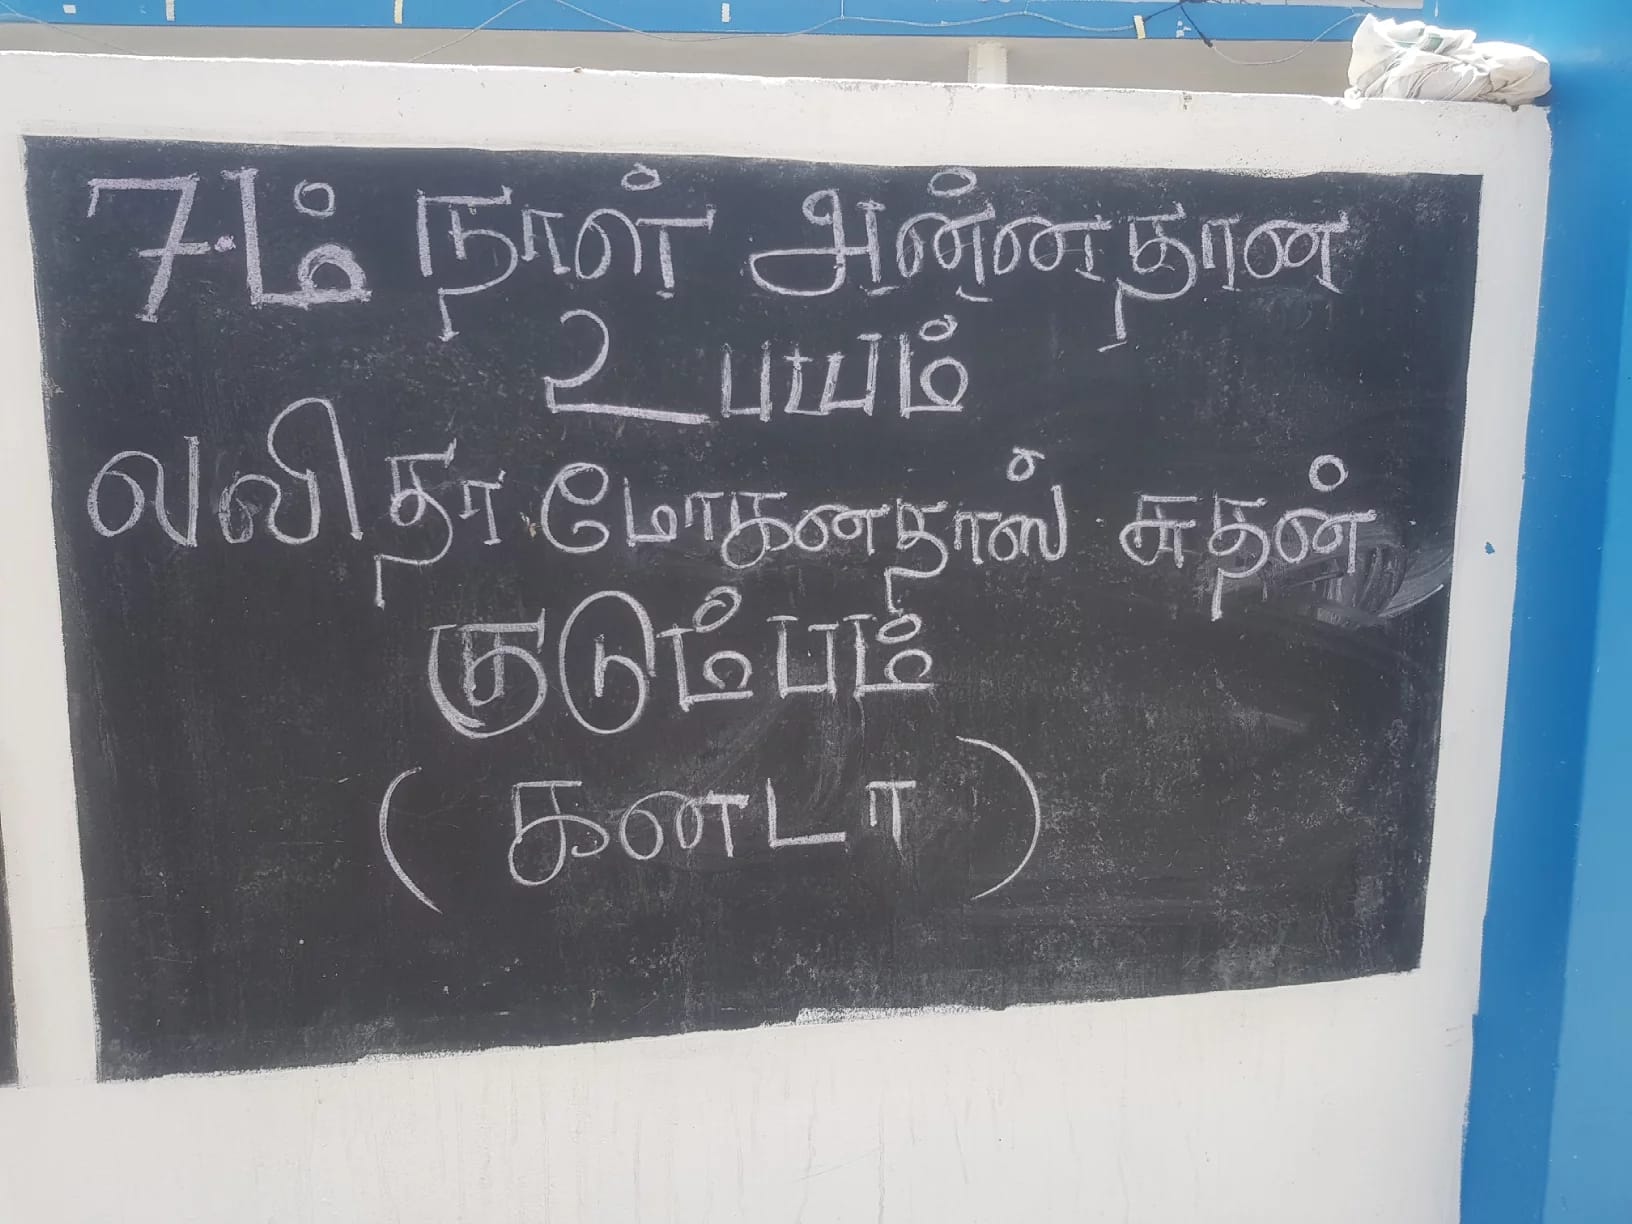 7ம் நாள் அன்னதான
உபயம்
லலிதா மோகனதாஸ் சுதன்
குடும்பம்
( கனடா )